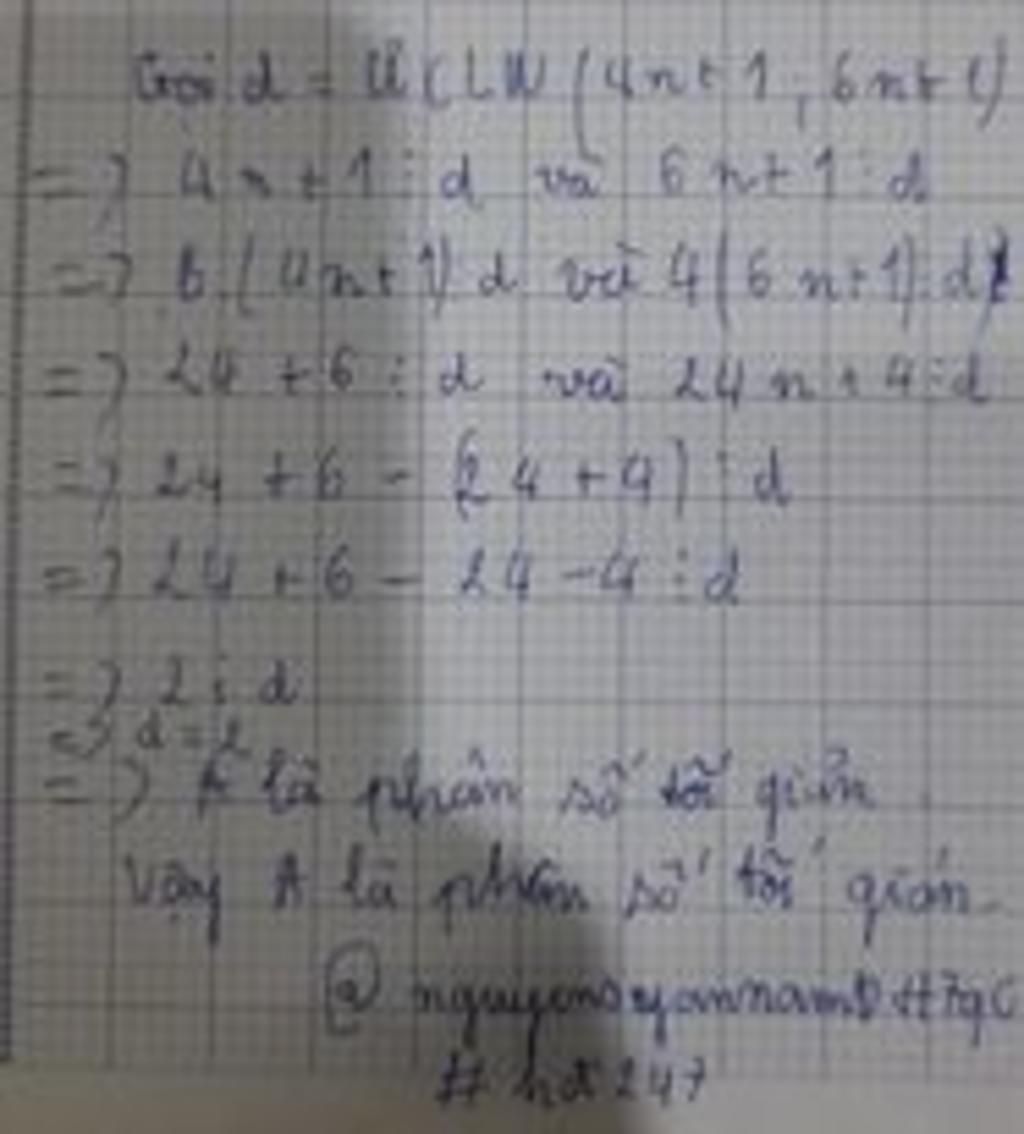 Gọi d = ƯCLN (4n+1, 6n+1)
=> 4n+1 ⋮ d và 6n+1 ⋮ d
=> 6(4n+1) d và 4(6n+1) ⋮ d
=> 24 + 6 ⋮ d và 24n + 4 ⋮ d
=> 24 + 6 - (24 + 4) ⋮ d
=> 24 + 6 - 24 - 4 ⋮ d
=> 2 ⋮ d
=> d = 2
=> A là phân số tối giản
Vậy A là phân số tối giản
# hđ 247